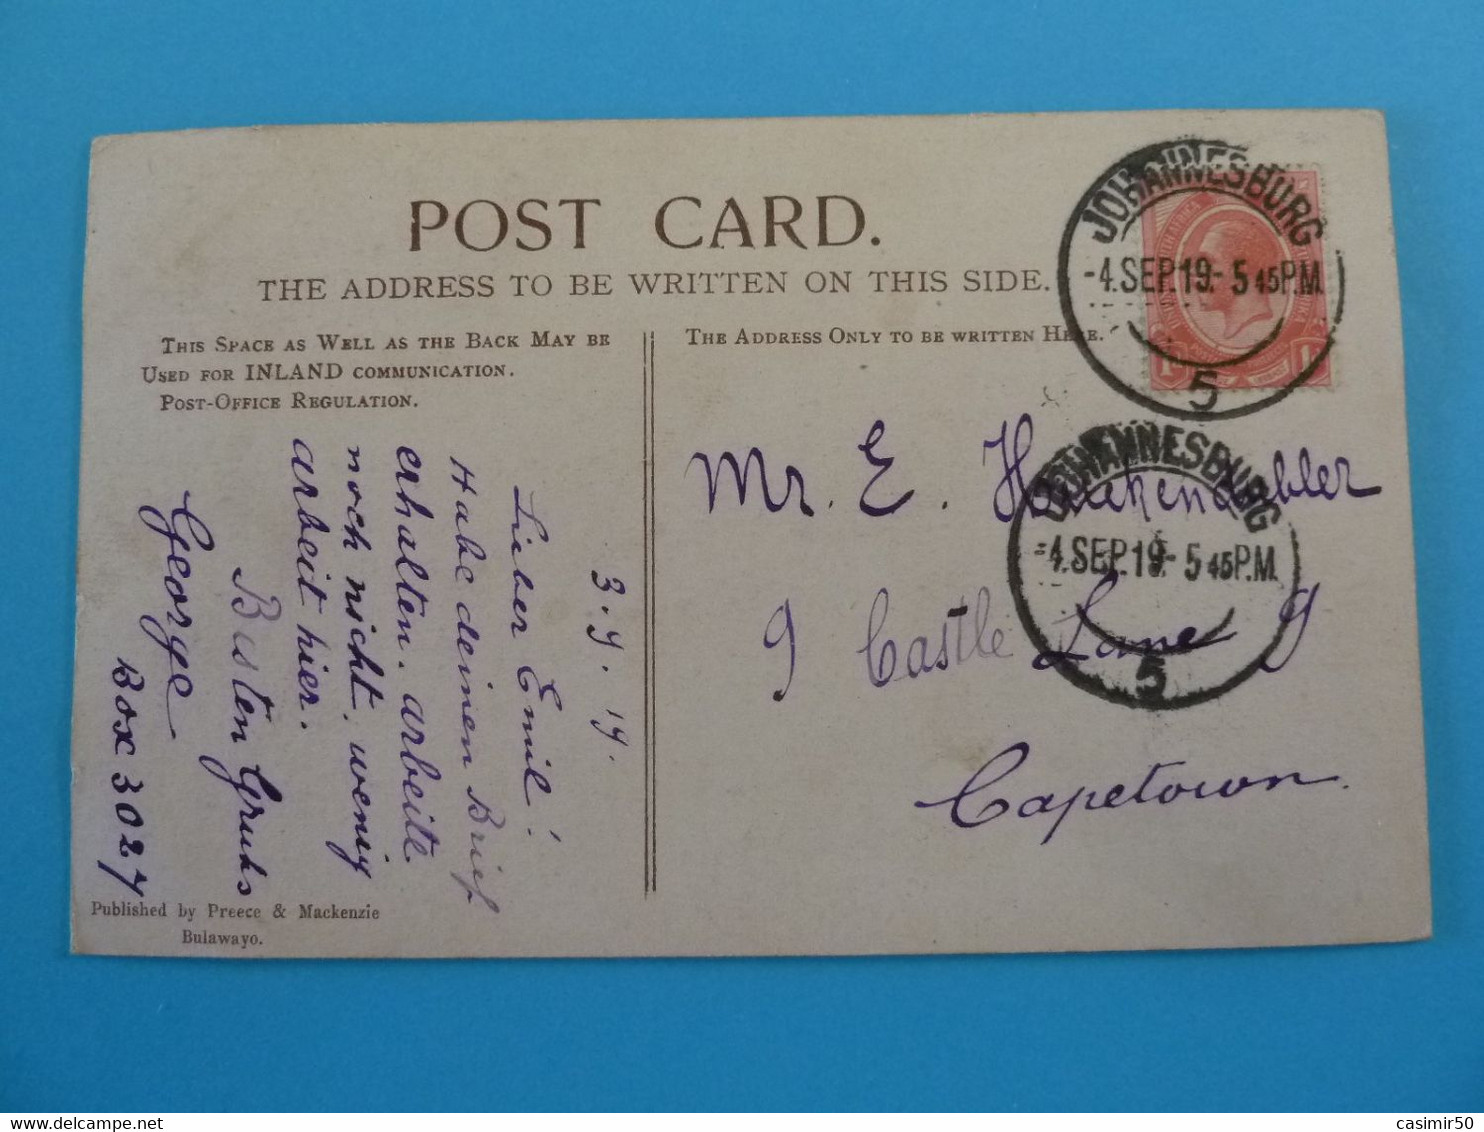 POST CARD.
THE ADDRESS TO BE WRITTEN ON THIS SIDE.
THIS SPACE AS WELL AS THE BACK MAY BE
USED FOR INLAND COMMUNICATION.
POST-OFFICE REGULATION.
THE ADDRESS ONLY TO BE WRITTEN HERE.
JOHANNESBURG
-4.SEP.19-5 45P.M.
5
JOHANNESBURG
-4.SEP.19-5 45P.M.
5
3.9.19.
Lieber Emil!
Habe deinen Brief
erhalten. arbeite
noch nicht. wenig
arbeit hier.
Besten Gruhs
George
Box 3027
Mr. E.
9 Castle Lane 9
Capetown.
Published by Preece & Mackenzie
Bulawayo.
casimir50